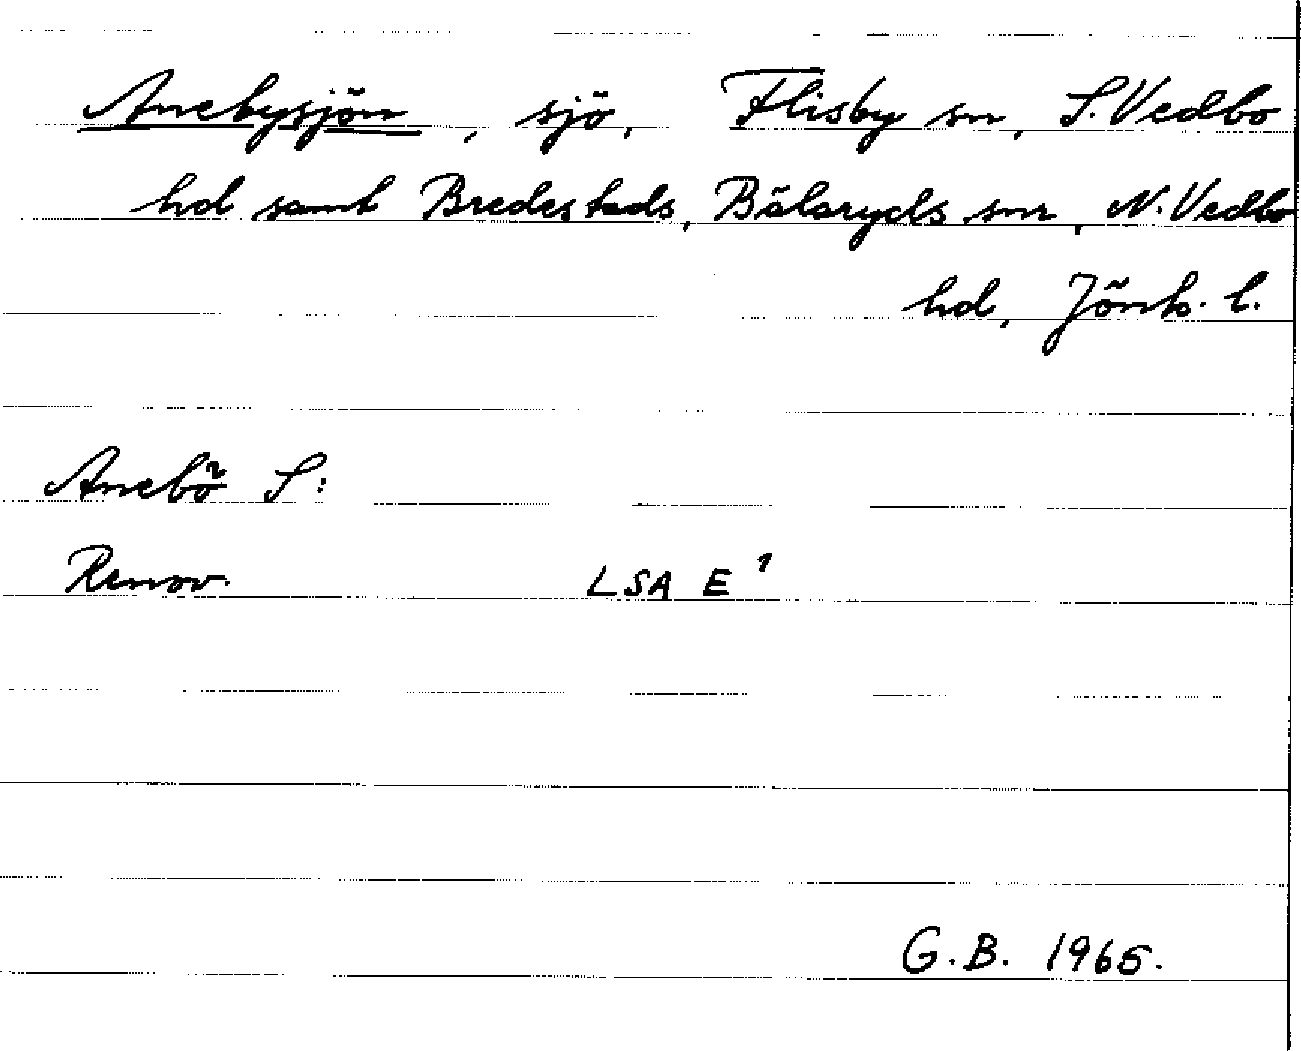 Anebysjön, sjö, Flisby sn, S. Vedbo
hd samt Bredestads, Bälaryds snr, N. Vedbo
hd, Jönk. l.
Anebö S:
Renov. LSA E 1
G.B. 1965.